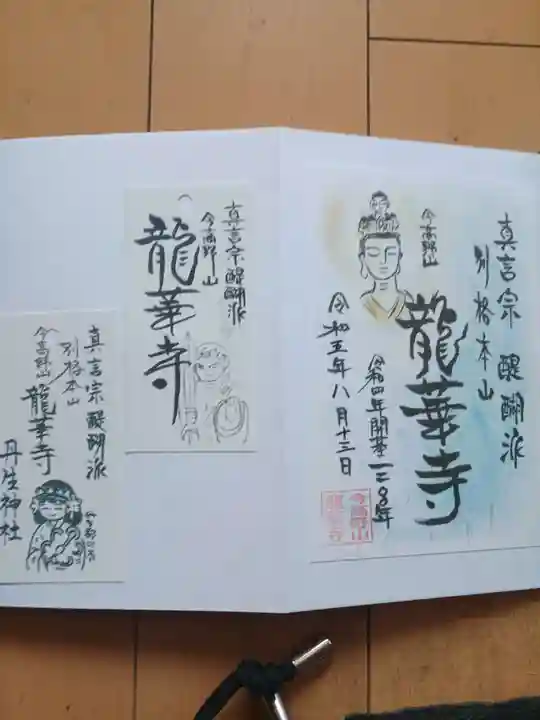 真言宗 醍醐派
別格本山
今高野山
龍華寺
令和四年開基一二〇〇年
令和五年八月十三日
今高野山
龍華寺
真言宗醍醐派
今高野山
龍華寺
真言宗 醍醐派
別格本山
今高野山 龍華寺
丹生神社